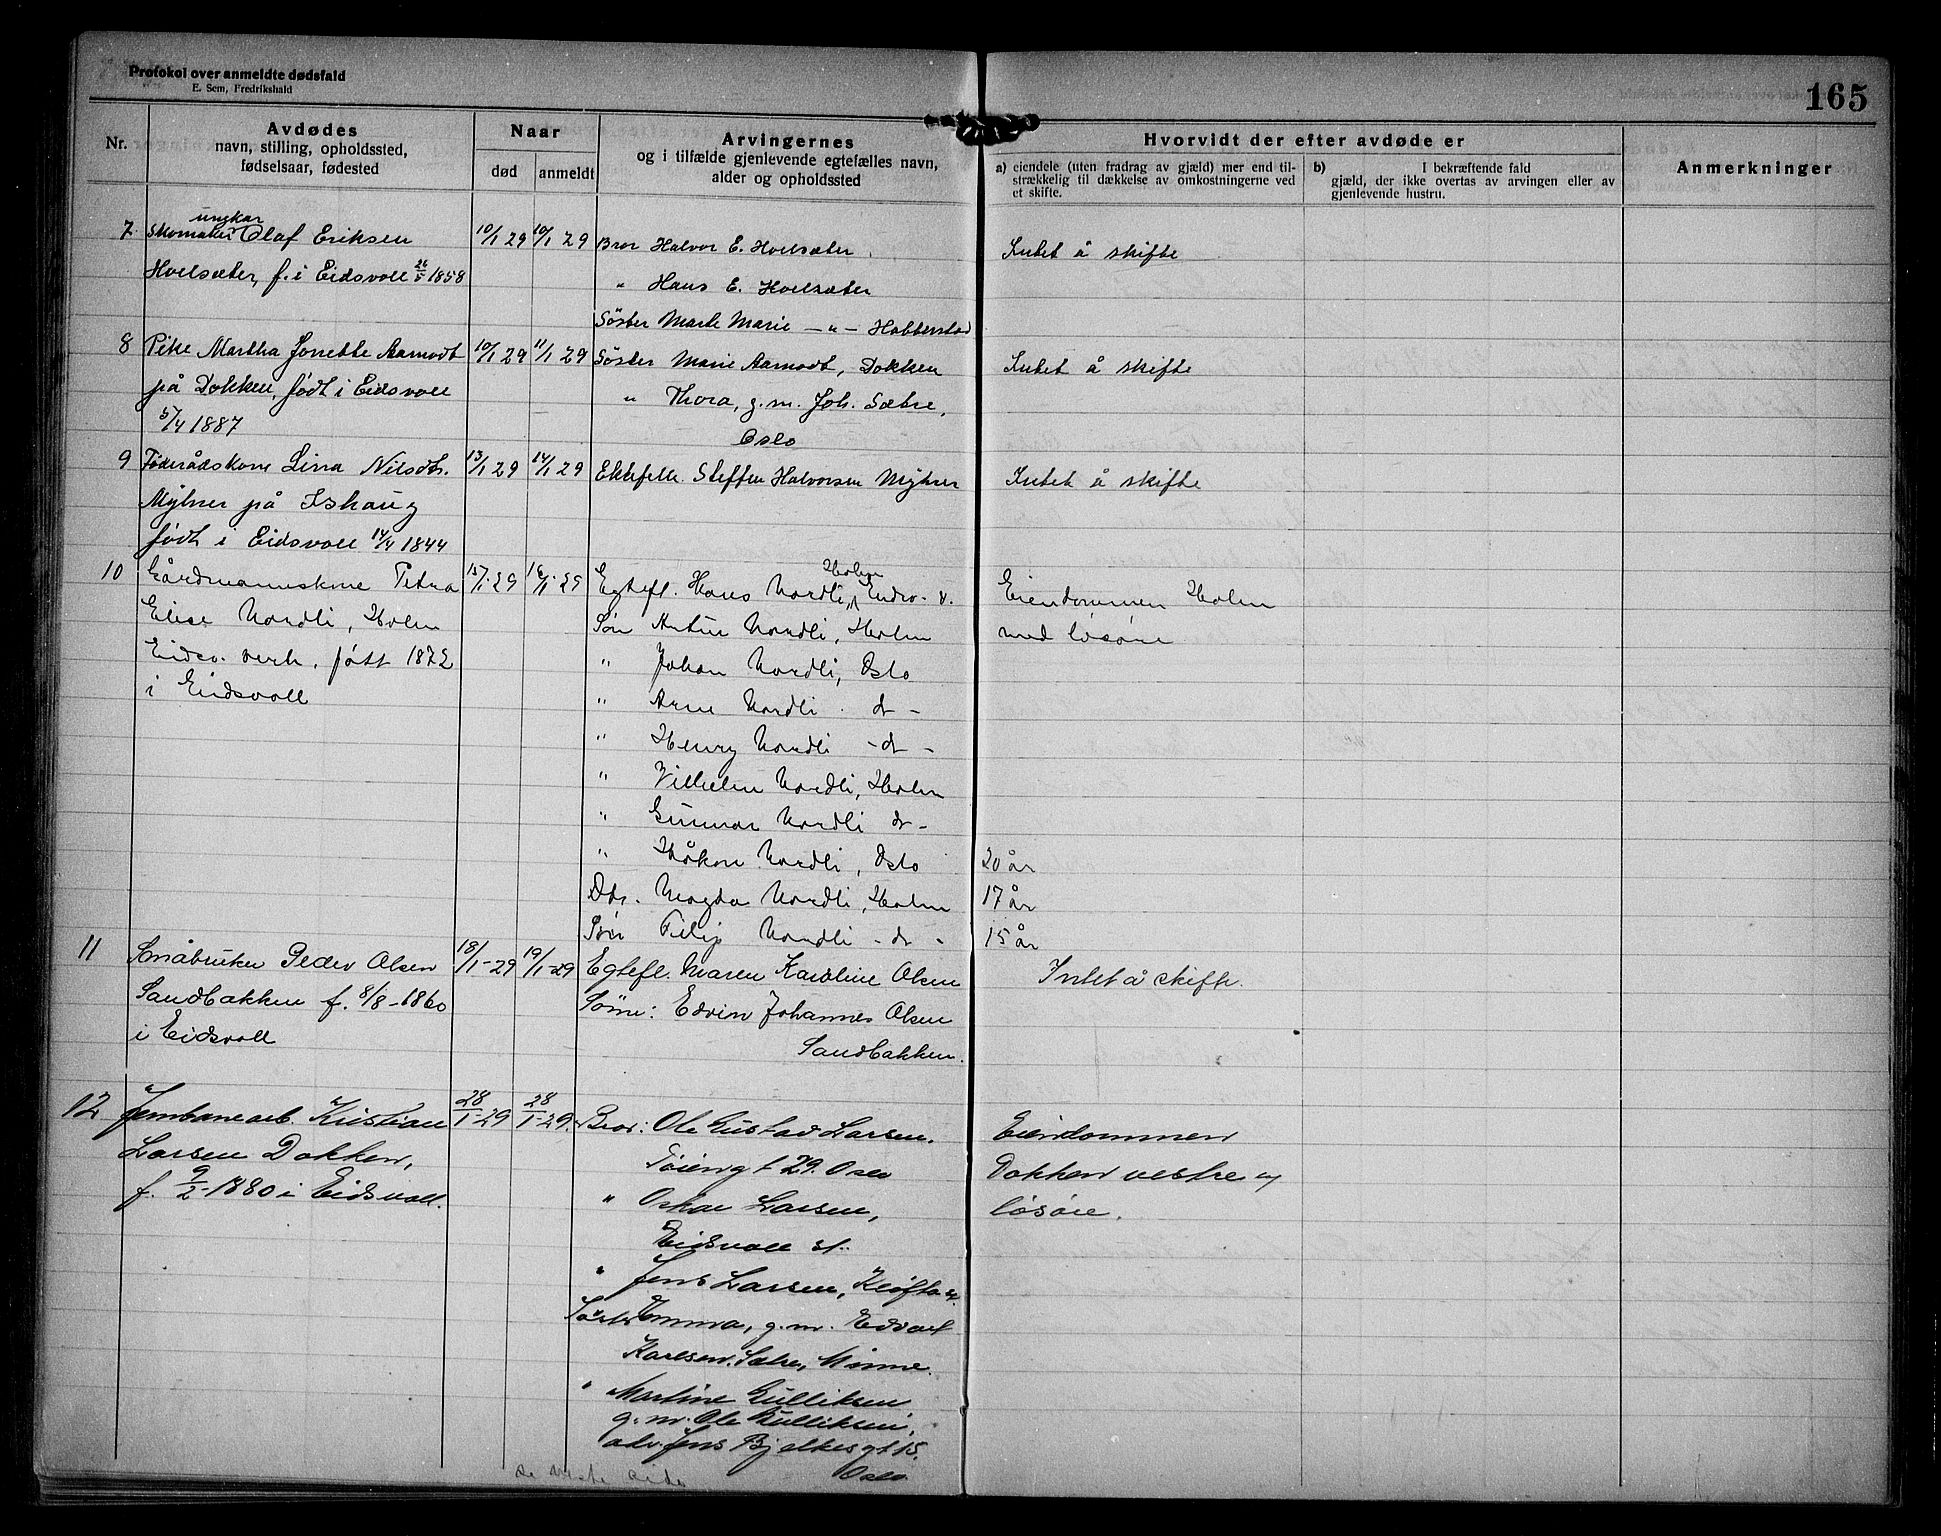 Protokol over anmeldte dødsfald
E. Sem, Fredrikshald
165
Nr.
Avdødes
navn, stilling, opholdssted,
fødselsaar, fødested
Naar
død
anmeldt
Arvingernes
og i tilfælde gjenlevende egtefælles navn,
alder og opholdssted
Hvorvidt der efter avdøde er
a) eiendele (uten fradrag av gjæld) mer end til-
strækkelig til dækkelse av omkostningerne ved
et skifte.
b) I bekræftende fald
gjæld, der ikke overtas av arvingen eller av
gjenlevende hustru.
Anmerkninger
ungkar
7 Skomaker Olaf Eriksen 10/1 29 10/1 29 Bror Halvor E. Hvelsæter Intet å skifte
Hvelsæter, f. i Eidsvoll 26/5 1858
" Hans E. Hvelsæter
Søster Marte Marie — " — Habberstad
8 Pike Martha Jonette Aamodt 10/1 29 11/1 29 Søster Marie Aamodt, Dokken Intet å skifte
på Dokken, født i Eidsvoll " Thora, g.m. Joh. Sætre,
5/4 1887 Oslo
9 Føderådskone Lina Nilsdtr. 13/1 29 14/1 29 Ektefelle Steffen Halvorsen Myhrer Intet å skifte
Myhrer på Ishaug
født i Eidsvoll 14/4 1844
10 Gårdmannskone Petra 15/1-29 16/1-29 Egtefl. Hans Nordli, Holm Eidsv. v. Eiendommen Holm
Elise Nordli, Holm Søn Artur Nordli, Holm med løsøre
Eidsv. verk, født 1872 " Johan Nordli, Oslo
i Eidsvoll " Arne Nordli - d -
" Henry Nordli - d -
" Vilhelm Nordli, Holm
" Gunnar Nordli d -
" Håkon Nordli, Oslo 20 år
Dtr. Magda Nordli, Holm 17 år
Søn Filip Nordli - d - 15 år
11 Småbruker Peder Olsen 18/1-29 19/1-29 Egtefl. Maren Karoline Olsen Intet å skifte.
Sandbakken f. 8/8-1860 Sønn: Edvin Johannes Olsen
i Eidsvoll Sandbakken.
12 Jernbanearb. Kristian 28/1-29 28/1-29. Bror: Ole Gustav Larsen. Eiendommen
Larsen Dokken, Tøiengt 29. Oslo Dokken vestre m
f. 9/2-1880 i Eidsvoll. " Oskar Larsen, løsøre.
Eidsvoll st.
" Jens Larsen, Kløfta
Søster Emma, g.m. Edvart
Karlsen. Sætre, Minne.
" Martine Gulliksen
g.m. Ole Gulliksen,
adr Jens Bjelkesgt 15.
Oslo
se neste side